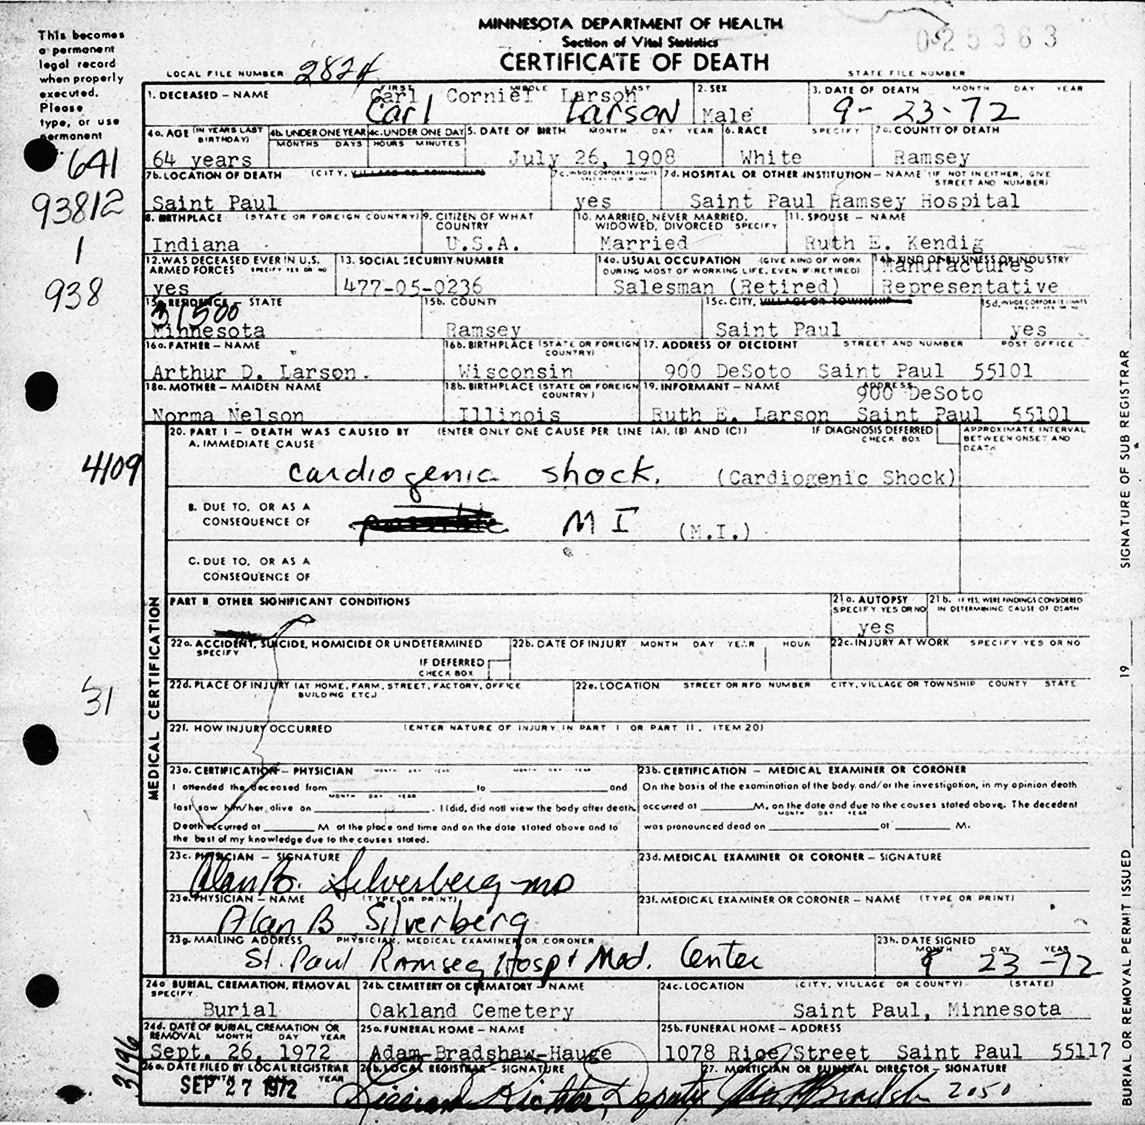 MINNESOTA DEPARTMENT OF HEALTH
Section of Vital Statistics
CERTIFICATE OF DEATH
025363
This becomes
a permanent
legal record
when properly
executed.
Please
type, or use
permanent
LOCAL FILE NUMBER 2824
STATE FILE NUMBER
1. DECEASED – NAME FIRST MIDDLE LAST
Carl Corniel Larson
Carl Larson
2. SEX
Male
3. DATE OF DEATH MONTH DAY YEAR
9-23-72
4a. AGE (IN YEARS LAST BIRTHDAY)
64 years
4b. UNDER ONE YEAR
MONTHS DAYS
4c. UNDER ONE DAY
HOURS MINUTES
5. DATE OF BIRTH MONTH DAY YEAR
July 26, 1908
6. RACE SPECIFY
White
7a. COUNTY OF DEATH
Ramsey
641
7b. LOCATION OF DEATH (CITY, VILLAGE OR TOWNSHIP)
Saint Paul
7c. INSIDE CORPORATE LIMITS
SPECIFY YES OR NO
yes
7d. HOSPITAL OR OTHER INSTITUTION – NAME (IF NOT IN EITHER, GIVE
STREET AND NUMBER)
Saint Paul Ramsey Hospital
93812
8. BIRTHPLACE (STATE OR FOREIGN COUNTRY)
Indiana
9. CITIZEN OF WHAT
COUNTRY
U.S.A.
10. MARRIED, NEVER MARRIED,
WIDOWED, DIVORCED SPECIFY
Married
11. SPOUSE – NAME
Ruth E. Kendig
1
12. WAS DECEASED EVER IN U.S.
ARMED FORCES SPECIFY YES OR NO
yes
13. SOCIAL SECURITY NUMBER
477-05-0236
14a. USUAL OCCUPATION (GIVE KIND OF WORK
DURING MOST OF WORKING LIFE, EVEN IF RETIRED)
Salesman (Retired)
14b. KIND OF BUSINESS OR INDUSTRY
Manufactures
Representative
938
15a. RESIDENCE – STATE
31500
Minnesota
15b. COUNTY
Ramsey
15c. CITY, VILLAGE OR TOWNSHIP
Saint Paul
15d. INSIDE CORPORATE LIMITS
SPECIFY YES OR NO
yes
16a. FATHER – NAME
Arthur D. Larson.
16b. BIRTHPLACE (STATE OR FOREIGN
COUNTRY)
Wisconsin
17. ADDRESS OF DECEDENT STREET AND NUMBER POST OFFICE
900 DeSoto Saint Paul 55101
18a. MOTHER – MAIDEN NAME
Norma Nelson
18b. BIRTHPLACE (STATE OR FOREIGN
COUNTRY)
Illinois
19. INFORMANT – NAME ADDRESS
900 DeSoto
Ruth E. Larson Saint Paul 55101
20. PART I – DEATH WAS CAUSED BY (ENTER ONLY ONE CAUSE PER LINE (A), (B) AND (C))
IF DIAGNOSIS DEFERRED
CHECK BOX
APPROXIMATE INTERVAL
BETWEEN ONSET AND
DEATH
A. IMMEDIATE CAUSE
4109
cardiogenic shock. (Cardiogenic Shock)
B. DUE TO, OR AS A
CONSEQUENCE OF
possible MI (M.I.)
C. DUE TO, OR AS A
CONSEQUENCE OF
PART II OTHER SIGNIFICANT CONDITIONS
21a. AUTOPSY
SPECIFY YES OR NO
yes
21b. IF YES, WERE FINDINGS CONSIDERED
IN DETERMINING CAUSE OF DEATH
22a. ACCIDENT, SUICIDE, HOMICIDE OR UNDETERMINED
SPECIFY
IF DEFERRED
CHECK BOX
22b. DATE OF INJURY MONTH DAY YEAR HOUR
22c. INJURY AT WORK SPECIFY YES OR NO
31
22d. PLACE OF INJURY (AT HOME, FARM, STREET, FACTORY, OFFICE
BUILDING ETC.)
22e. LOCATION STREET OR RFD NUMBER CITY, VILLAGE OR TOWNSHIP COUNTY STATE
22f. HOW INJURY OCCURRED (ENTER NATURE OF INJURY IN PART I OR PART II, ITEM 20)
MEDICAL CERTIFICATION
23a. CERTIFICATION – PHYSICIAN MONTH DAY YEAR MONTH DAY YEAR
I attended the deceased from to and
MONTH DAY YEAR
last saw him/her alive on . I (did, did not) view the body after death.
Death occurred at M at the place and time and on the date stated above and to
the best of my knowledge due to the causes stated.
23b. CERTIFICATION – MEDICAL EXAMINER OR CORONER
On the basis of the examination of the body and/or the investigation, in my opinion death
occurred at M, on the date and due to the causes stated above. The decedent
MONTH DAY YEAR
was pronounced dead on at M.
23c. PHYSICIAN – SIGNATURE
Alan B. Silverberg MD
23d. MEDICAL EXAMINER OR CORONER – SIGNATURE
23e. PHYSICIAN – NAME (TYPE OR PRINT)
Alan B Silverberg
23f. MEDICAL EXAMINER OR CORONER – NAME (TYPE OR PRINT)
23g. MAILING ADDRESS PHYSICIAN, MEDICAL EXAMINER OR CORONER
St. Paul Ramsey Hosp & Med. Center
23h. DATE SIGNED
MONTH DAY YEAR
9 23 -72
24a BURIAL, CREMATION, REMOVAL
SPECIFY
Burial
24b. CEMETERY OR CREMATORY – NAME
Oakland Cemetery
24c. LOCATION (CITY, VILLAGE OR COUNTY) (STATE)
Saint Paul, Minnesota
24d. DATE OF BURIAL, CREMATION OR
REMOVAL MONTH DAY YEAR
Sept. 26, 1972
25a. FUNERAL HOME – NAME
Adam-Bradshaw-Hauge
25b. FUNERAL HOME – ADDRESS
1078 Rice Street Saint Paul 55117
3196
26a. DATE FILED BY LOCAL REGISTRAR
MONTH DAY YEAR
SEP 27 1972
26b. LOCAL REGISTRAR – SIGNATURE
Deputy
27. MORTICIAN OR FUNERAL DIRECTOR – SIGNATURE
2050
SIGNATURE OF SUB REGISTRAR
19
BURIAL OR REMOVAL PERMIT ISSUED